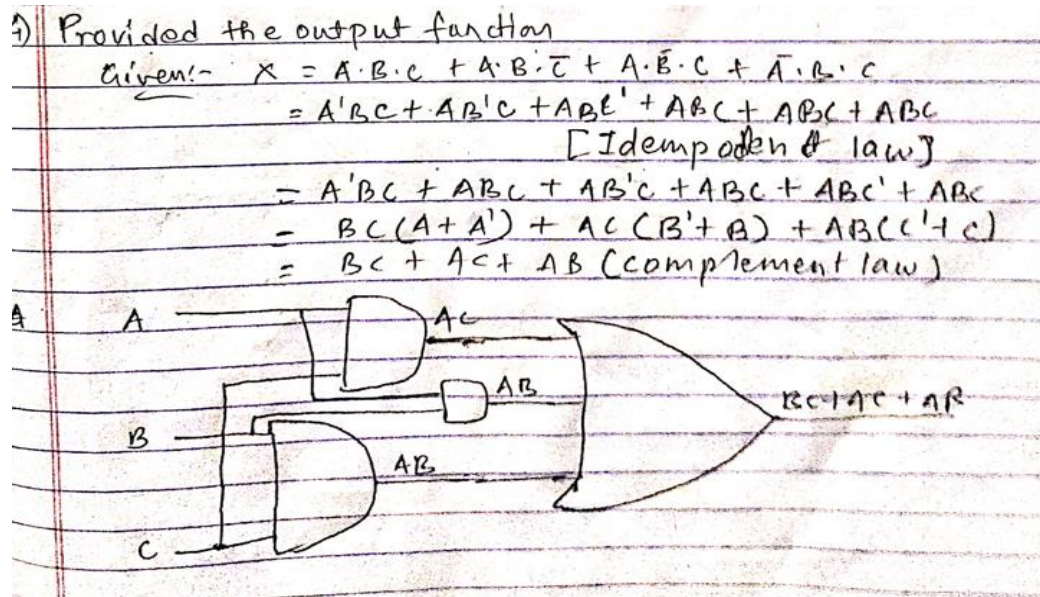 7) Provided the output function
Given:- X = A.B.C + A.B.C̅ + A.B̅.C + A̅.B.C
= A'BC + AB'C + ABC' + ABC + ABC + ABC
[Idempodent law]
= A'BC + ABC + AB'C + ABC + ABC' + ABC
= BC(A+A') + AC(B'+B) + AB(C'+C)
= BC + AC + AB (complement law)
A
AC
AB
BC+AC+AB
B
AB
C